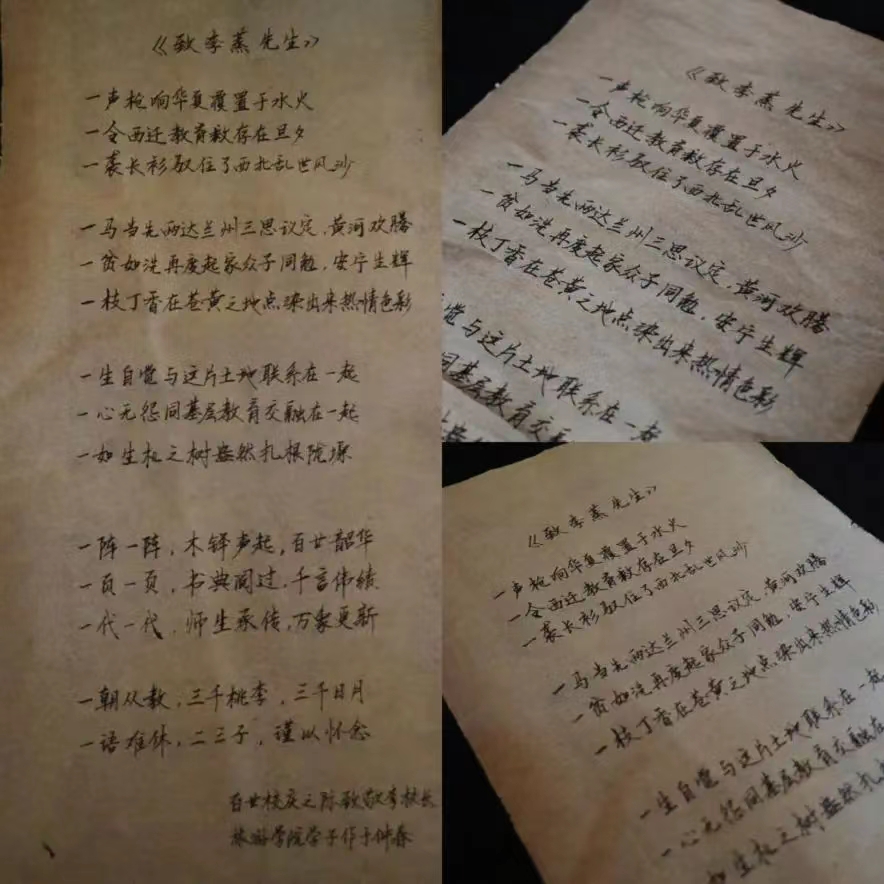 《致李蒸先生》
一声枪响华夏覆置于水火
一令西迁教育救存在旦夕
一袭长衫驭住了西北乱世风沙
一马当先两达兰州三思议定，黄河欢腾
一贫如洗再度起家众子同勉，安宁生辉
一枝丁香在苍黄之地点染出来热情色彩
一生自觉与这片土地联系在一起
一心无怨同基层教育交融在一起
一如生机之树盎然扎根陇塬
一阵一阵，木铎声起，百廿韶华
一页一页，书典阅过，千言伟绩
一代一代，师生承传，万象更新
一朝从教，三千桃李，三千日月
一语难休，二三子，谨以怀念
百廿校庆之际致敬李校长
旅游学院学子作于仲春
《致李蒸先生》
一声枪响华夏覆置于水火
一令西迁教育救存在旦夕
一袭长衫驭住了西北乱世风沙
一马当先两达兰州三思议定，黄河欢腾
一贫如洗再度起家众子同勉，安宁生辉
一枝丁香在苍黄之地点染出来热情色彩
觉与这片土地联系在一起
同基层教育交融在一
《致李蒸先生》
一声枪响华夏覆置于水火
一令西迁教育救存在旦夕
一袭长衫驭住了西北乱世风沙
一马当先两达兰州三思议定，黄河欢腾
一贫如洗再度起家众子同勉，安宁生辉
一枝丁香在苍黄之地点染出来热情色彩
一生自觉与这片土地联系在一起
一心无怨同基层教育交融在
如生机之树盎然扎